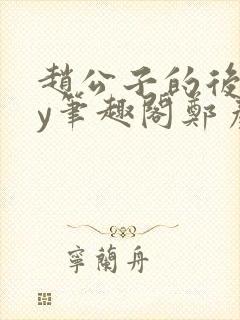 趙公子的後
y筆趣閣鄭
寧蘭舟